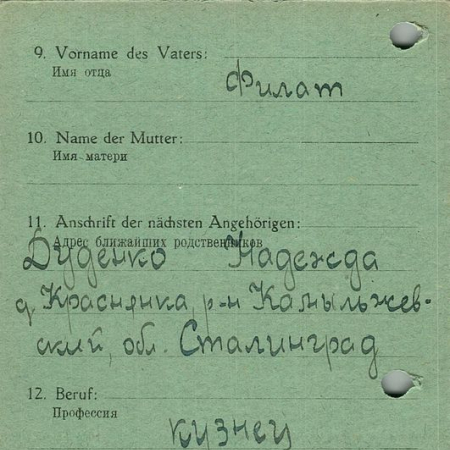 9. Vorname des Vaters:
Имя отца
Филат
10. Name der Mutter:
Имя матери
11. Anschrift der nächsten Angehörigen:
Адрес ближайших родственников
Дуденко Надежда
д. Краснянка, р-н Камыльжев-
ский, обл. Сталинград
12. Beruf:
Профессия
кузнец